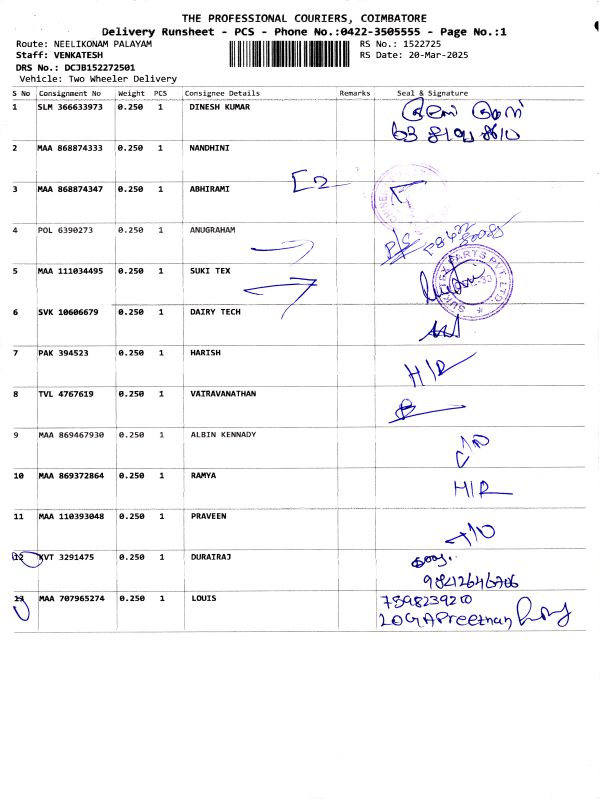 THE PROFESSIONAL COURIERS, COIMBATORE
Delivery Runsheet - PCS - Phone No.:0422-3505555 - Page No.:1
Route: NEELIKONAM PALAYAM RS No.: 1522725
Staff: VENKATESH RS Date: 20-Mar-2025
DRS No.: DCJB152272501
Vehicle: Two Wheeler Delivery
S No Consignment No Weight PCS Consignee Details Remarks Seal & Signature
1 SLM 366633973 0.250 1 DINESH KUMAR
2 MAA 868874333 0.250 1 NANDHINI
3 MAA 868874347 0.250 1 ABHIRAMI
4 POL 6390273 0.250 1 ANUGRAHAM
5 MAA 111034495 0.250 1 SUKI TEX
6 SVK 10606679 0.250 1 DAIRY TECH
7 PAK 394523 0.250 1 HARISH H/R
8 TVL 4767619 0.250 1 VAIRAVANATHAN
9 MAA 869467930 0.250 1 ALBIN KENNADY
10 MAA 869372864 0.250 1 RAMYA H/R
11 MAA 110393048 0.250 1 PRAVEEN
12 KVT 3291475 0.250 1 DURAIRAJ
13 MAA 707965274 0.250 1 LOUIS 7598239210
LOGAPreethan